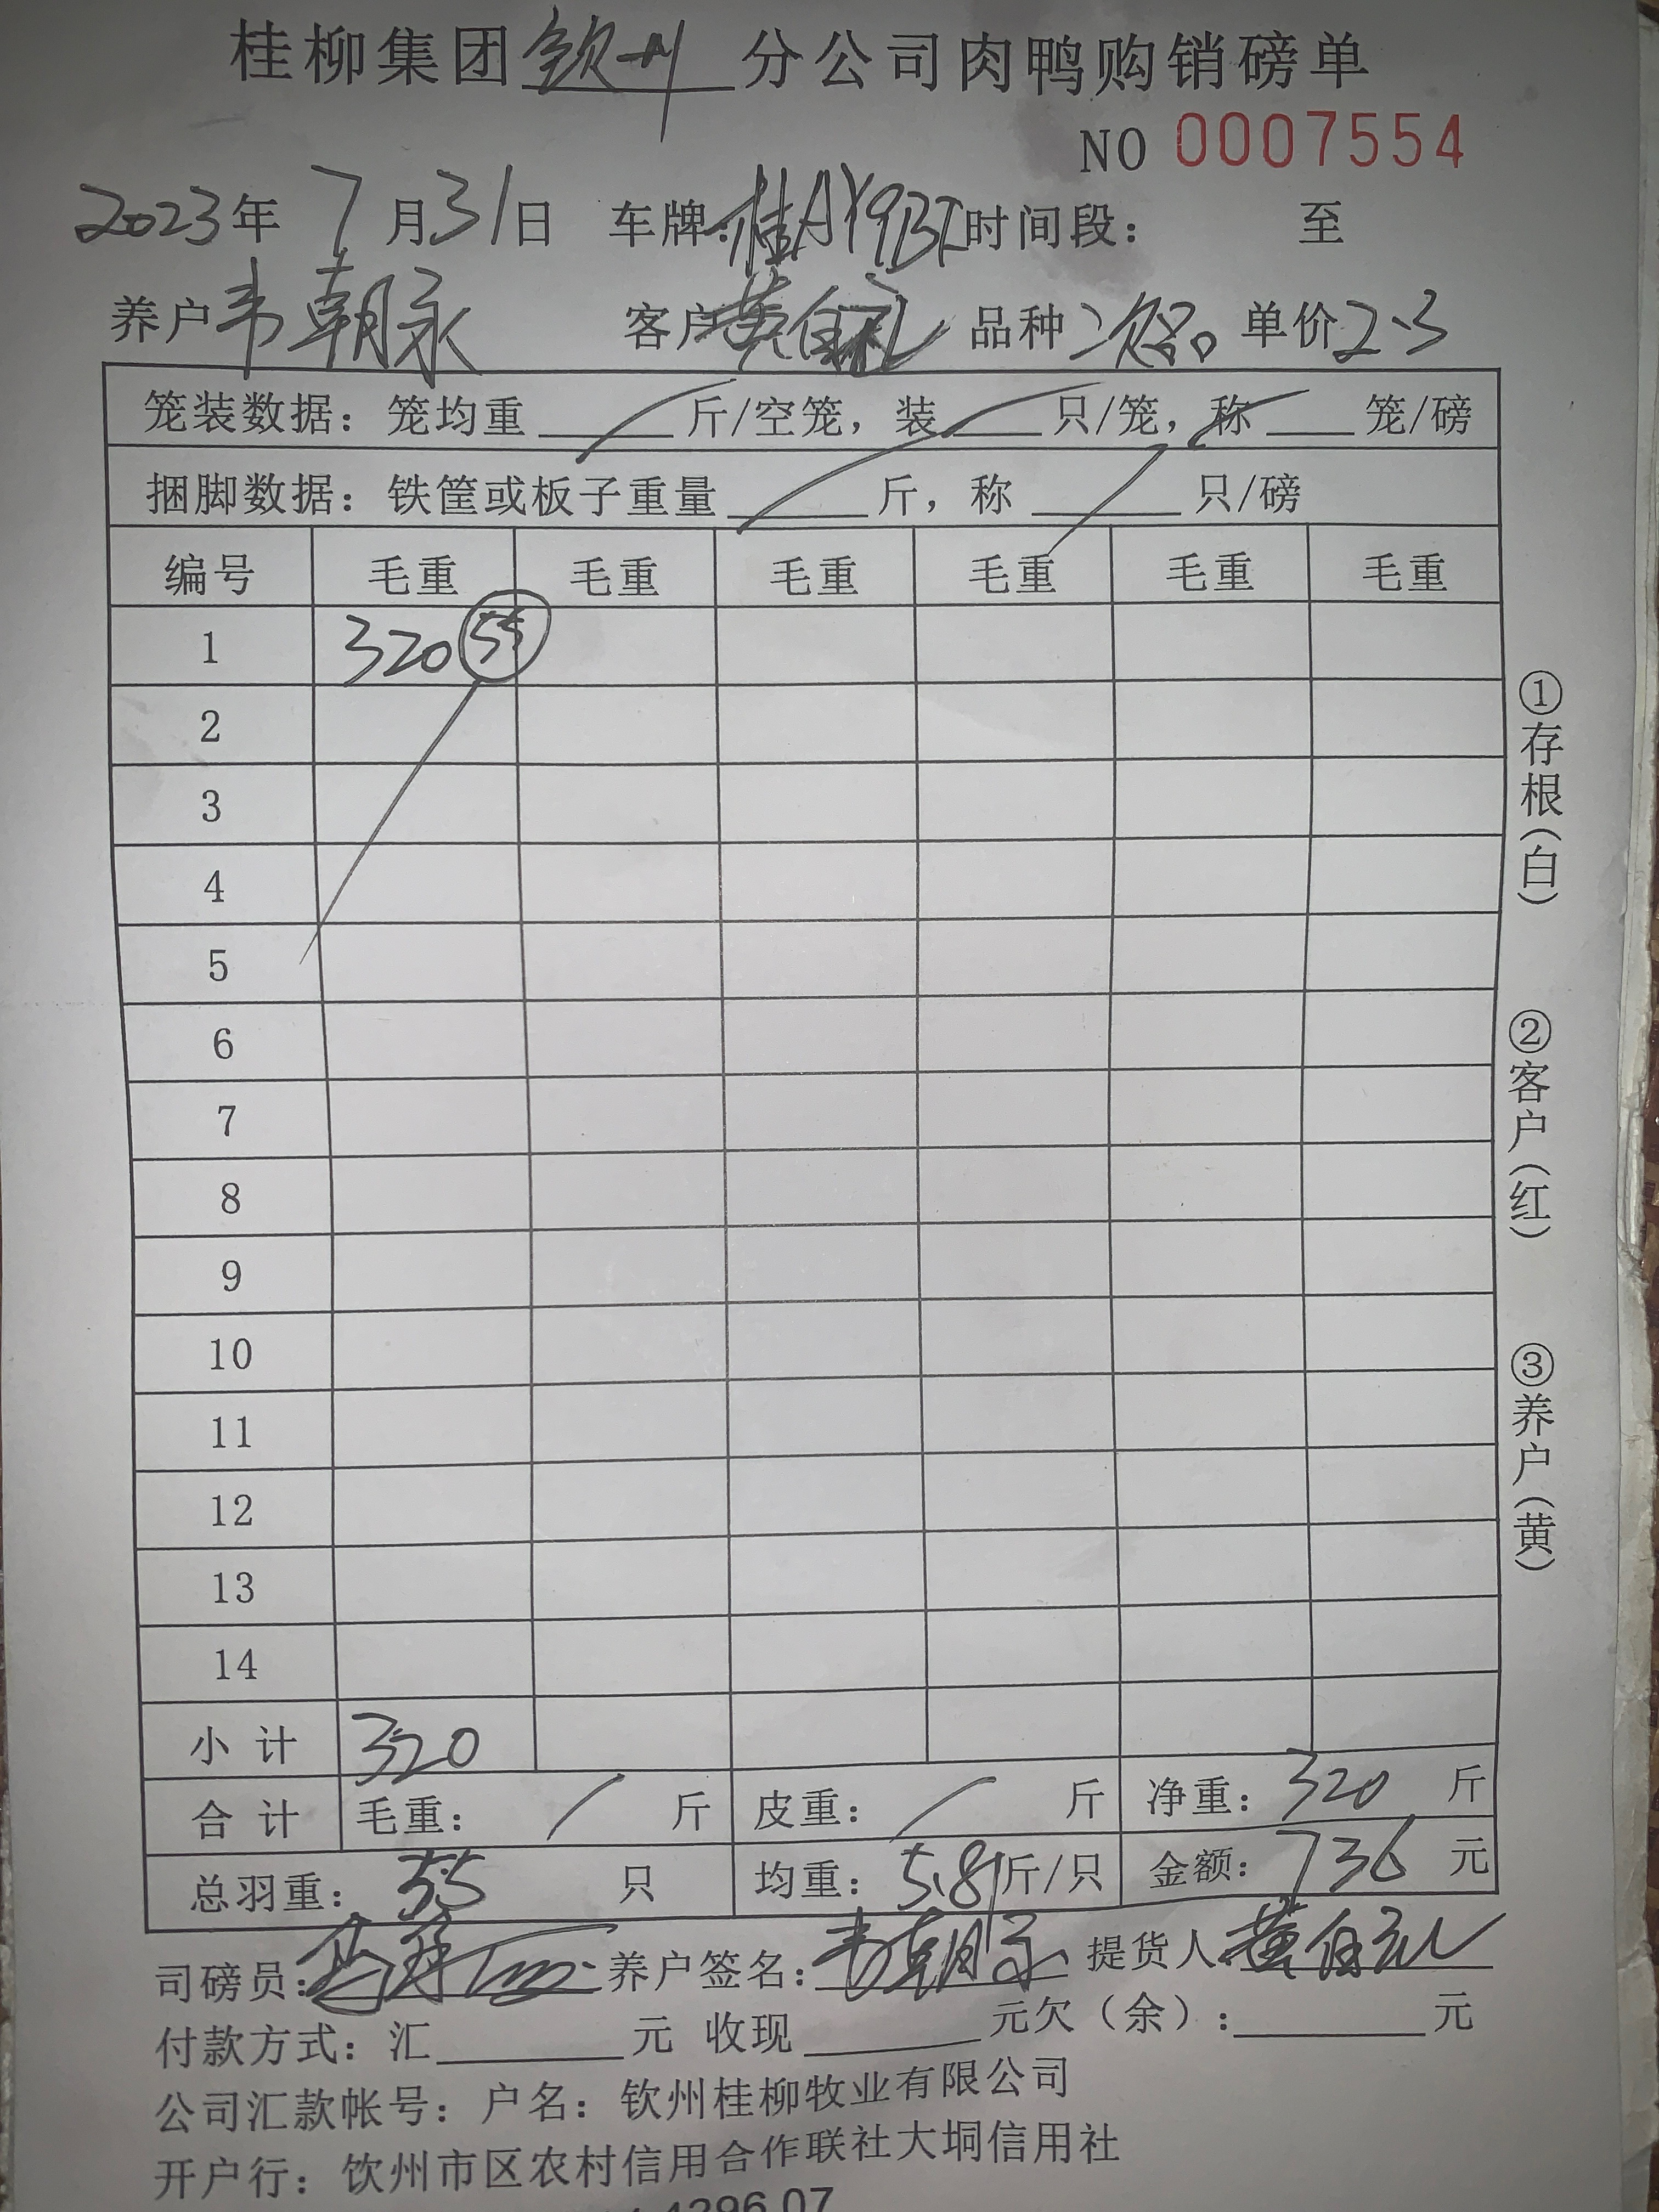 桂柳集团钦州分公司肉鸭购销磅单
NO 0007554
2023年 7月31日 车牌: 时间段: 至
养户韦朝永 客户黄自礼 品种 次品 单价2.3
笼装数据: 笼均重 斤/空笼, 装 只/笼, 称 笼/磅
捆脚数据: 铁筐或板子重量 斤, 称 只/磅
编号 毛重 毛重 毛重 毛重 毛重 毛重
1 320 55
2
3
4
5
6
7
8
9
10
11
12
13
14
小计 320
合计 毛重: / 斤 皮重: / 斤 净重: 320 斤
总羽重: 55 只 均重: 5.81斤/只 金额: 736 元
司磅员: 养户签名: 韦朝永 提货人 黄自礼
付款方式: 汇 元 收现 元欠(余): 元
公司汇款帐号: 户名: 钦州桂柳牧业有限公司
开户行: 钦州市区农村信用合作联社大垌信用社
①存根(白)
②客户(红)
③养户(黄)